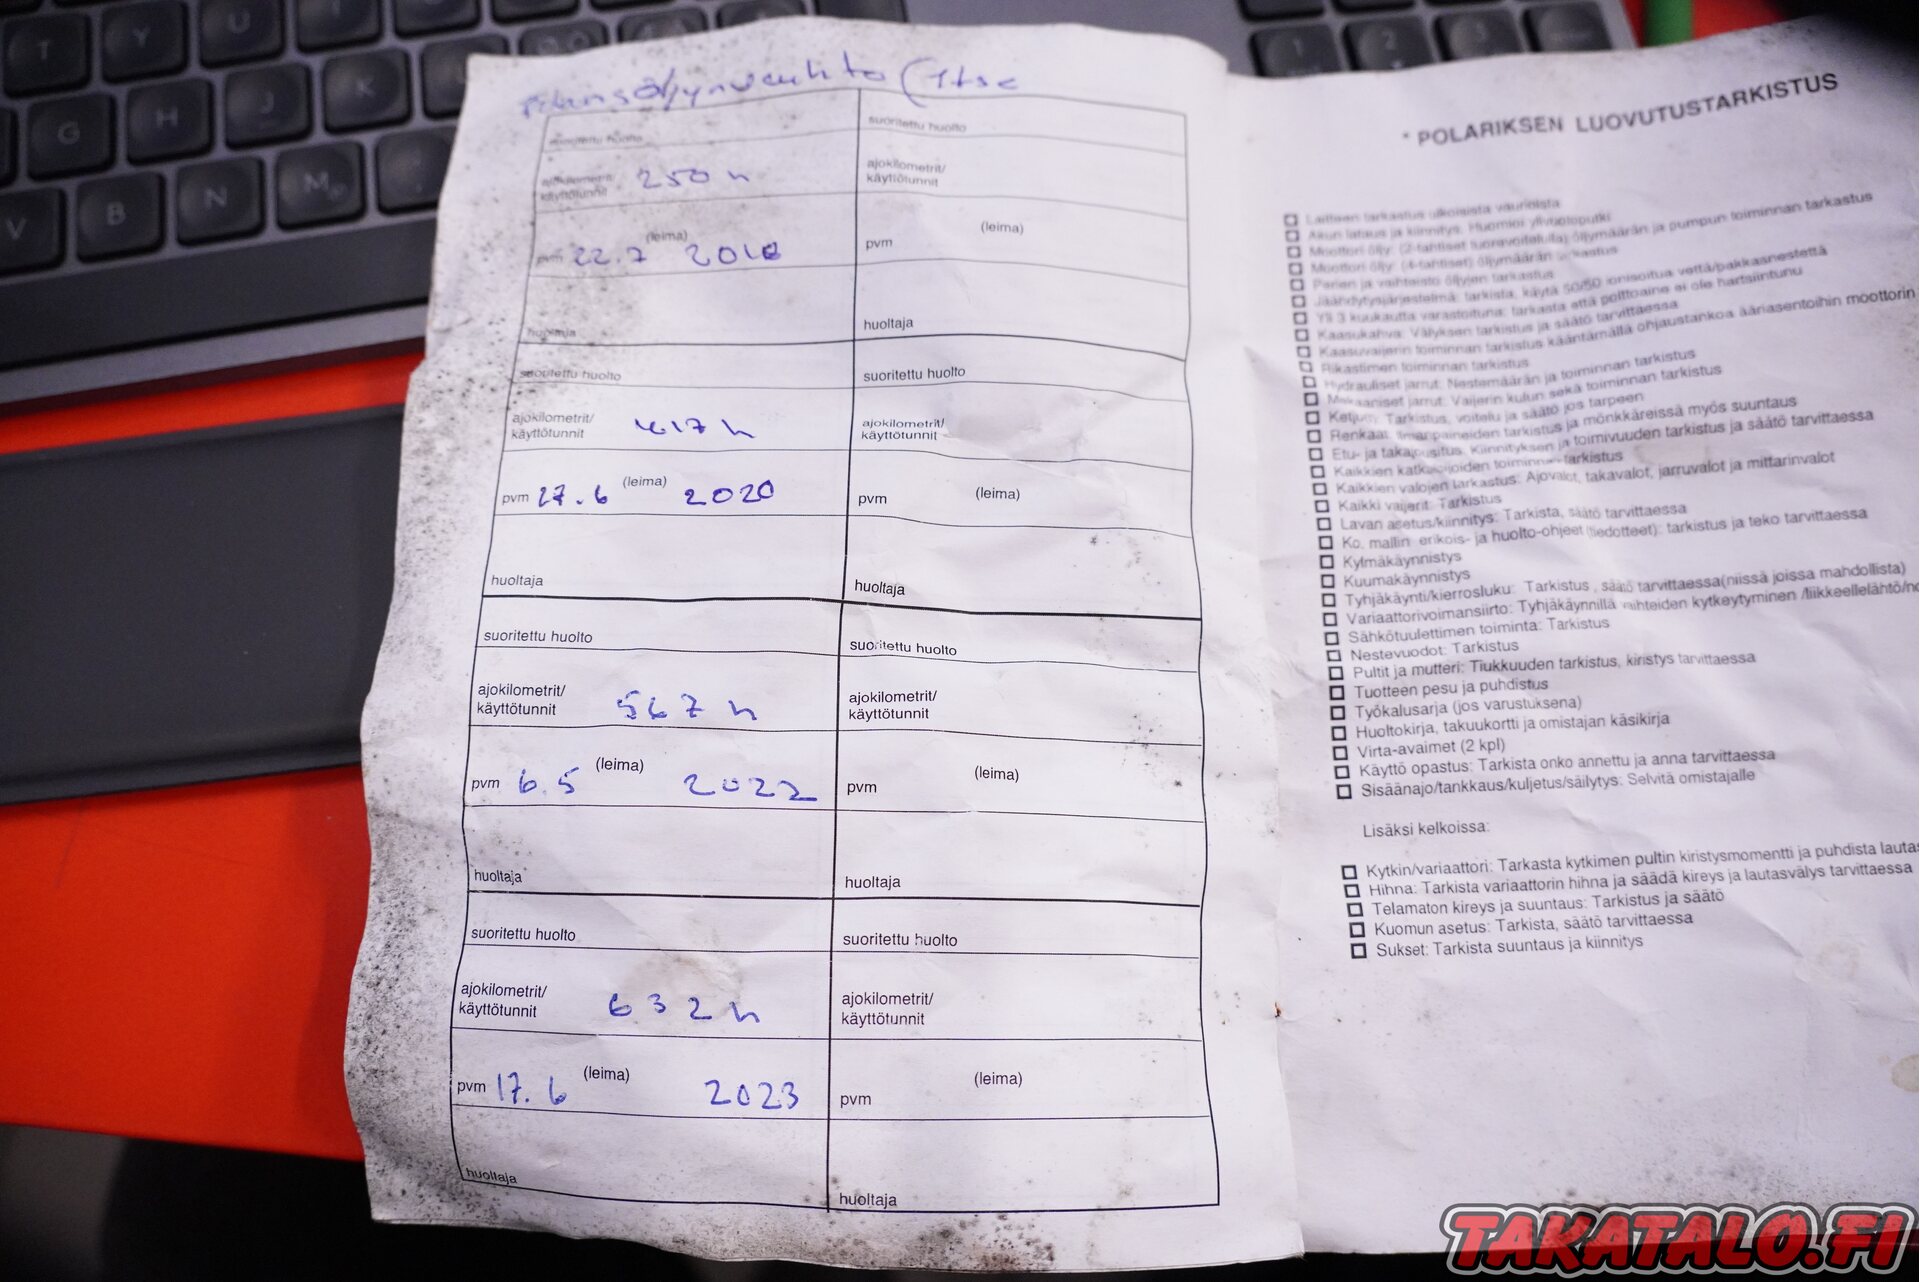 (Itse
suoritettu huolto
ajokilometrit/
käyttötunnit 250 h
(leima)
pvm 22.7
huoltaja
suoritettu huolto
ajokilometrit/
käyttötunnit 417 h
(leima)
pvm 27.6 2020
huoltaja
suoritettu huolto
ajokilometrit/
käyttötunnit 567 h
(leima)
pvm 6.5 2022
huoltaja
suoritettu huolto
ajokilometrit/
käyttötunnit 632 h
(leima)
pvm 17.6 2023
huoltaja
suoritettu huolto
ajokilometrit/
käyttötunnit
(leima)
pvm
huoltaja
suoritettu huolto
ajokilometrit/
käyttötunnit
(leima)
pvm
huoltaja
suoritettu huolto
ajokilometrit/
käyttötunnit
(leima)
pvm
huoltaja
suoritettu huolto
ajokilometrit/
käyttötunnit
(leima)
pvm
huoltaja
* POLARIKSEN LUOVUTUSTARKISTUS
Laitteen tarkastus ulkoisista vaurioista
Akun lataus ja kiinnitys. Huomioi ylivuotoputki
Moottori öljy: (2-tahtiset tuorevoitelulla) öljymäärän ja pumpun toiminnan tarkastus
Moottori öljy: (4-tahtiset) öljymäärän tarkastus
Perien ja vaihteisto öljyjen tarkastus
Jäähdytysjärjestelmä: tarkista, käytä 50/50 ionisoitua vettä/pakkasnestettä
Yli 3 kuukautta varastoituna: tarkasta että polttoaine ei ole hartsiintunu
Kaasukahva: Välyksen tarkistus ja säätö tarvittaessa
Kaasuvaijerin toiminnan tarkistus kääntämällä ohjaustankoa ääriasentoihin moottorin
Rikastimen toiminnan tarkistus
Hydrauliset jarrut: Nestemäärän ja toiminnan tarkistus
Mekaaniset jarrut: Vaijerin kulun sekä toiminnan tarkistus
Ketjut: Tarkistus, voitelu ja säätö jos tarpeen
Renkaat: Ilmanpaineiden tarkistus ja mönkkäreissä myös suuntaus
Etu- ja takajousitus. Kiinnityksen ja toimivuuden tarkistus ja säätö tarvittaessa
Kaikkien katkaisijoiden toiminnan tarkistus
Kaikkien valojen tarkastus: Ajovalot, takavalot, jarruvalot ja mittarinvalot
Kaikki vaijerit: Tarkistus
Lavan asetus/kiinnitys: Tarkista, säätö tarvittaessa
Ko. mallin erikois- ja huolto-ohjeet (tiedotteet): tarkistus ja teko tarvittaessa
Kylmäkäynnistys
Kuumakäynnistys
Tyhjäkäynti/kierrosluku: Tarkistus , säätö tarvittaessa(niissä joissa mahdollista)
Variaattorivoimansiirto: Tyhjäkäynnillä vaihteiden kytkeytyminen /liikkeellelähtö/no
Sähkötuulettimen toiminta: Tarkistus
Nestevuodot: Tarkistus
Pultit ja mutteri: Tiukkuuden tarkistus, kiristys tarvittaessa
Tuotteen pesu ja puhdistus
Työkalusarja (jos varustuksena)
Huoltokirja, takuukortti ja omistajan käsikirja
Virta-avaimet (2 kpl)
Käyttö opastus: Tarkista onko annettu ja anna tarvittaessa
Sisäänajo/tankkaus/kuljetus/säilytys: Selvitä omistajalle
Lisäksi kelkoissa:
Kytkin/variaattori: Tarkasta kytkimen pultin kiristysmomentti ja puhdista lautas
Hihna: Tarkista variaattorin hihna ja säädä kireys ja lautasvälys tarvittaessa
Telamaton kireys ja suuntaus: Tarkistus ja säätö
Kuomun asetus: Tarkista, säätö tarvittaessa
Sukset: Tarkista suuntaus ja kiinnitys
TAKATALO.FI